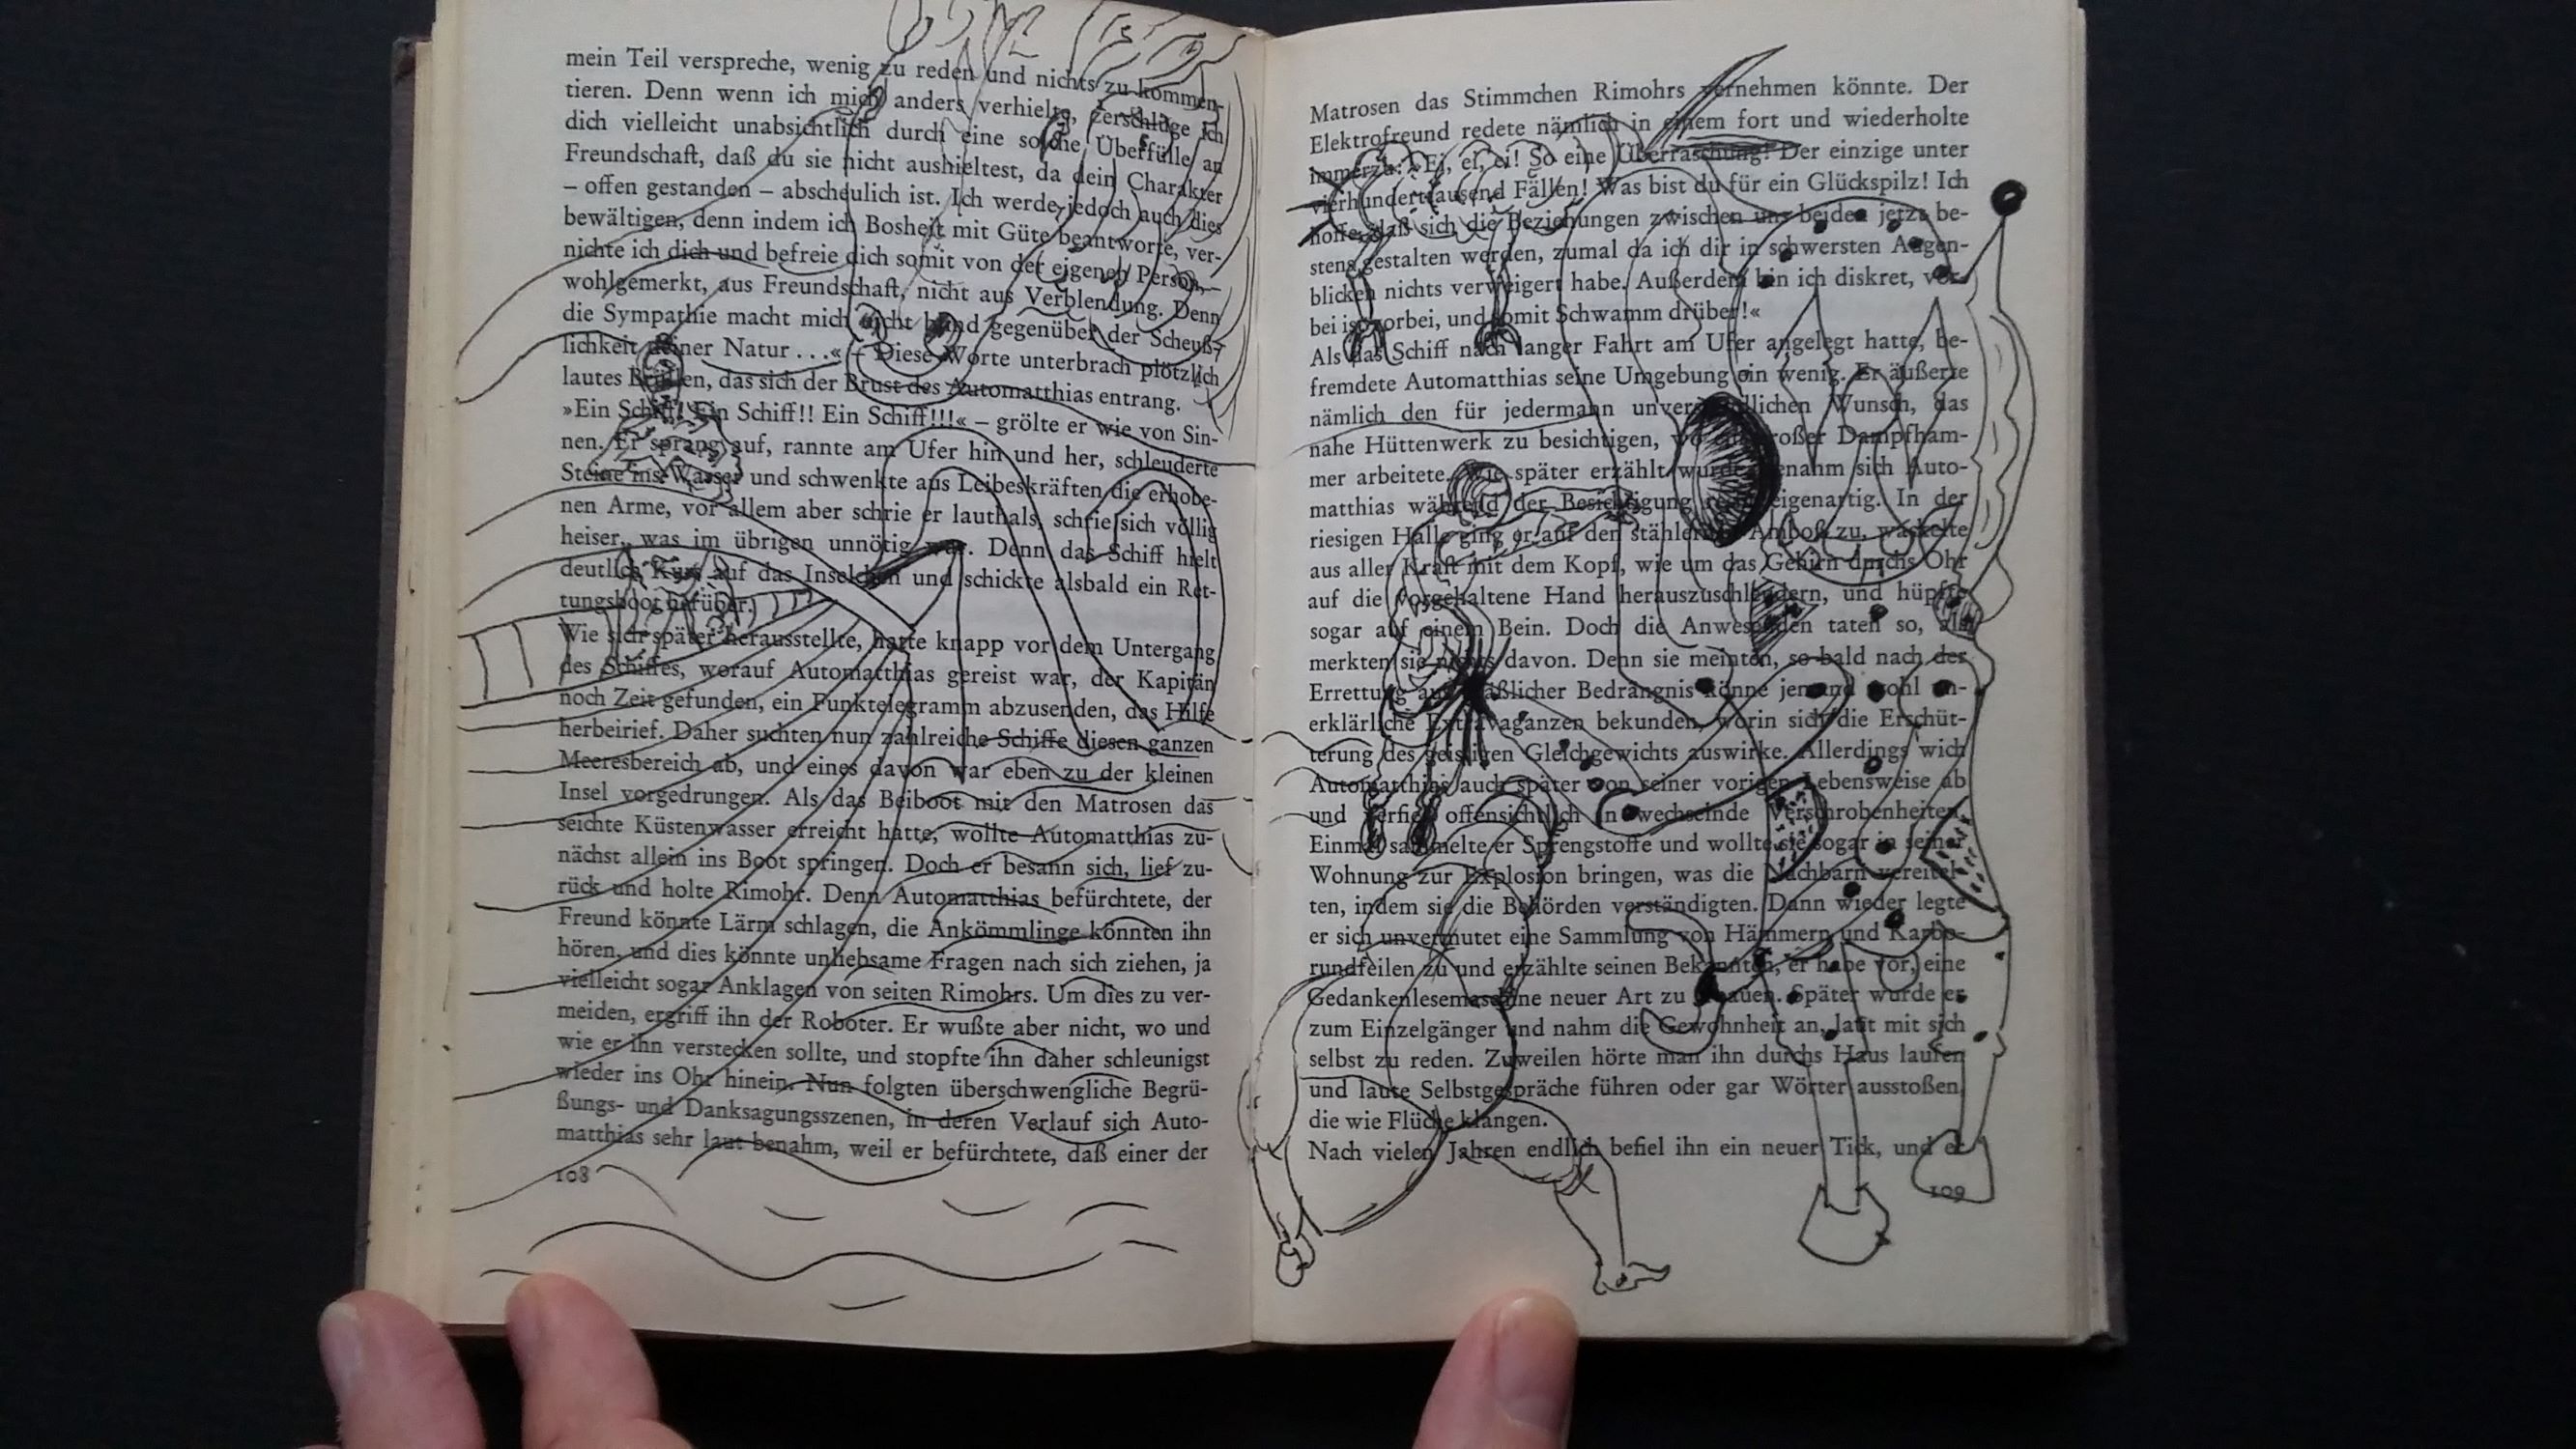 mein Teil verspreche, wenig zu reden und nichts zu kommen-
tieren. Denn wenn ich mich anders verhielte, zerschlüge ich
dich vielleicht unabsichtlich durch eine solche Überfülle an
Freundschaft, daß du sie nicht aushieltest, da dein Charakter
– offen gestanden – abscheulich ist. Ich werde jedoch auch dies
bewältigen, denn indem ich Bosheit mit Güte beantworte, ver-
nichte ich dich und befreie dich somit von der eigenen Person, –
wohlgemerkt, aus Freundschaft, nicht aus Verblendung. Denn
die Sympathie macht mich nicht blind gegenüber der Scheuß-
lichkeit deiner Natur . . .« – Diese Worte unterbrach plötzlich
lautes Brüllen, das sich der Brust des Automatthias entrang.
»Ein Schiff! Ein Schiff!! Ein Schiff!!!« – grölte er wie von Sin-
nen. Er sprang auf, rannte am Ufer hin und her, schleuderte
Steine ins Wasser und schwenkte aus Leibeskräften die erhobe-
nen Arme, vor allem aber schrie er lauthals, schrie sich völlig
heiser, was im übrigen unnötig war. Denn das Schiff hielt
deutlich Kurs auf das Inselchen und schickte alsbald ein Ret-
tungsboot herüber.
Wie sich später herausstellte, hatte knapp vor dem Untergang
des Schiffes, worauf Automatthias gereist war, der Kapitän
noch Zeit gefunden, ein Funktelegramm abzusenden, das Hilfe
herbeirief. Daher suchten nun zahlreiche Schiffe diesen ganzen
Meeresbereich ab, und eines davon war eben zu der kleinen
Insel vorgedrungen. Als das Beiboot mit den Matrosen das
seichte Küstenwasser erreicht hatte, wollte Automatthias zu-
nächst allein ins Boot springen. Doch er besann sich, lief zu-
rück und holte Rimohr. Denn Automatthias befürchtete, der
Freund könnte Lärm schlagen, die Ankömmlinge könnten ihn
hören, und dies könnte unliebsame Fragen nach sich ziehen, ja
vielleicht sogar Anklagen von seiten Rimohrs. Um dies zu ver-
meiden, ergriff ihn der Roboter. Er wußte aber nicht, wo und
wie er ihn verstecken sollte, und stopfte ihn daher schleunigst
wieder ins Ohr hinein. Nun folgten überschwengliche Begrü-
ßungs- und Danksagungsszenen, in deren Verlauf sich Auto-
matthias sehr laut benahm, weil er befürchtete, daß einer der
108
Matrosen das Stimmchen Rimohrs vernehmen könnte. Der
Elektrofreund redete nämlich in einem fort und wiederholte
immerzu: »Ei, ei, ei! So eine Überraschung! Der einzige unter
vierhunderttausend Fällen! Was bist du für ein Glückspilz! Ich
hoffe, daß sich die Beziehungen zwischen uns beiden jetzt be-
stens gestalten werden, zumal da ich dir in schwersten Augen-
blicken nichts verweigert habe. Außerdem bin ich diskret, vor-
bei ist vorbei, und somit Schwamm drüber!«
Als das Schiff nach langer Fahrt am Ufer angelegt hatte, be-
fremdete Automatthias seine Umgebung ein wenig. Er äußerte
nämlich den für jedermann unverständlichen Wunsch, das
nahe Hüttenwerk zu besichtigen, wo ein großer Dampfham-
mer arbeitete. Wie später erzählt wurde, benahm sich Auto-
matthias während der Besichtigung recht eigenartig. In der
riesigen Halle ging er auf den stählernen Amboß zu, wackelte
aus aller Kraft mit dem Kopf, wie um das Gehirn durchs Ohr
auf die vorgehaltene Hand herauszuschleudern, und hüpfte
sogar auf einem Bein. Doch die Anwesenden taten so, als
merkten sie nichts davon. Denn sie meinten, so bald nach der
Errettung aus gräßlicher Bedrängnis könne jemand wohl un-
erklärliche Extravaganzen bekunden, worin sich die Erschüt-
terung des geistigen Gleichgewichts auswirke. Allerdings wich
Automatthias auch später von seiner vorigen Lebensweise ab
und verfiel offensichtlich in wechselnde Verschrobenheiten.
Einmal sammelte er Sprengstoffe und wollte sie sogar in seiner
Wohnung zur Explosion bringen, was die Nachbarn vereitel-
ten, indem sie die Behörden verständigten. Dann wieder legte
er sich unvermutet eine Sammlung von Hämmern und Karbo-
rundfeilen zu und erzählte seinen Bekannten, er habe vor, eine
Gedankenlesemaschine neuer Art zu bauen. Später wurde er
zum Einzelgänger und nahm die Gewohnheit an, laut mit sich
selbst zu reden. Zuweilen hörte man ihn durchs Haus laufen
und laute Selbstgespräche führen oder gar Wörter ausstoßen,
die wie Flüche klangen.
Nach vielen Jahren endlich befiel ihn ein neuer Tick, und er
109